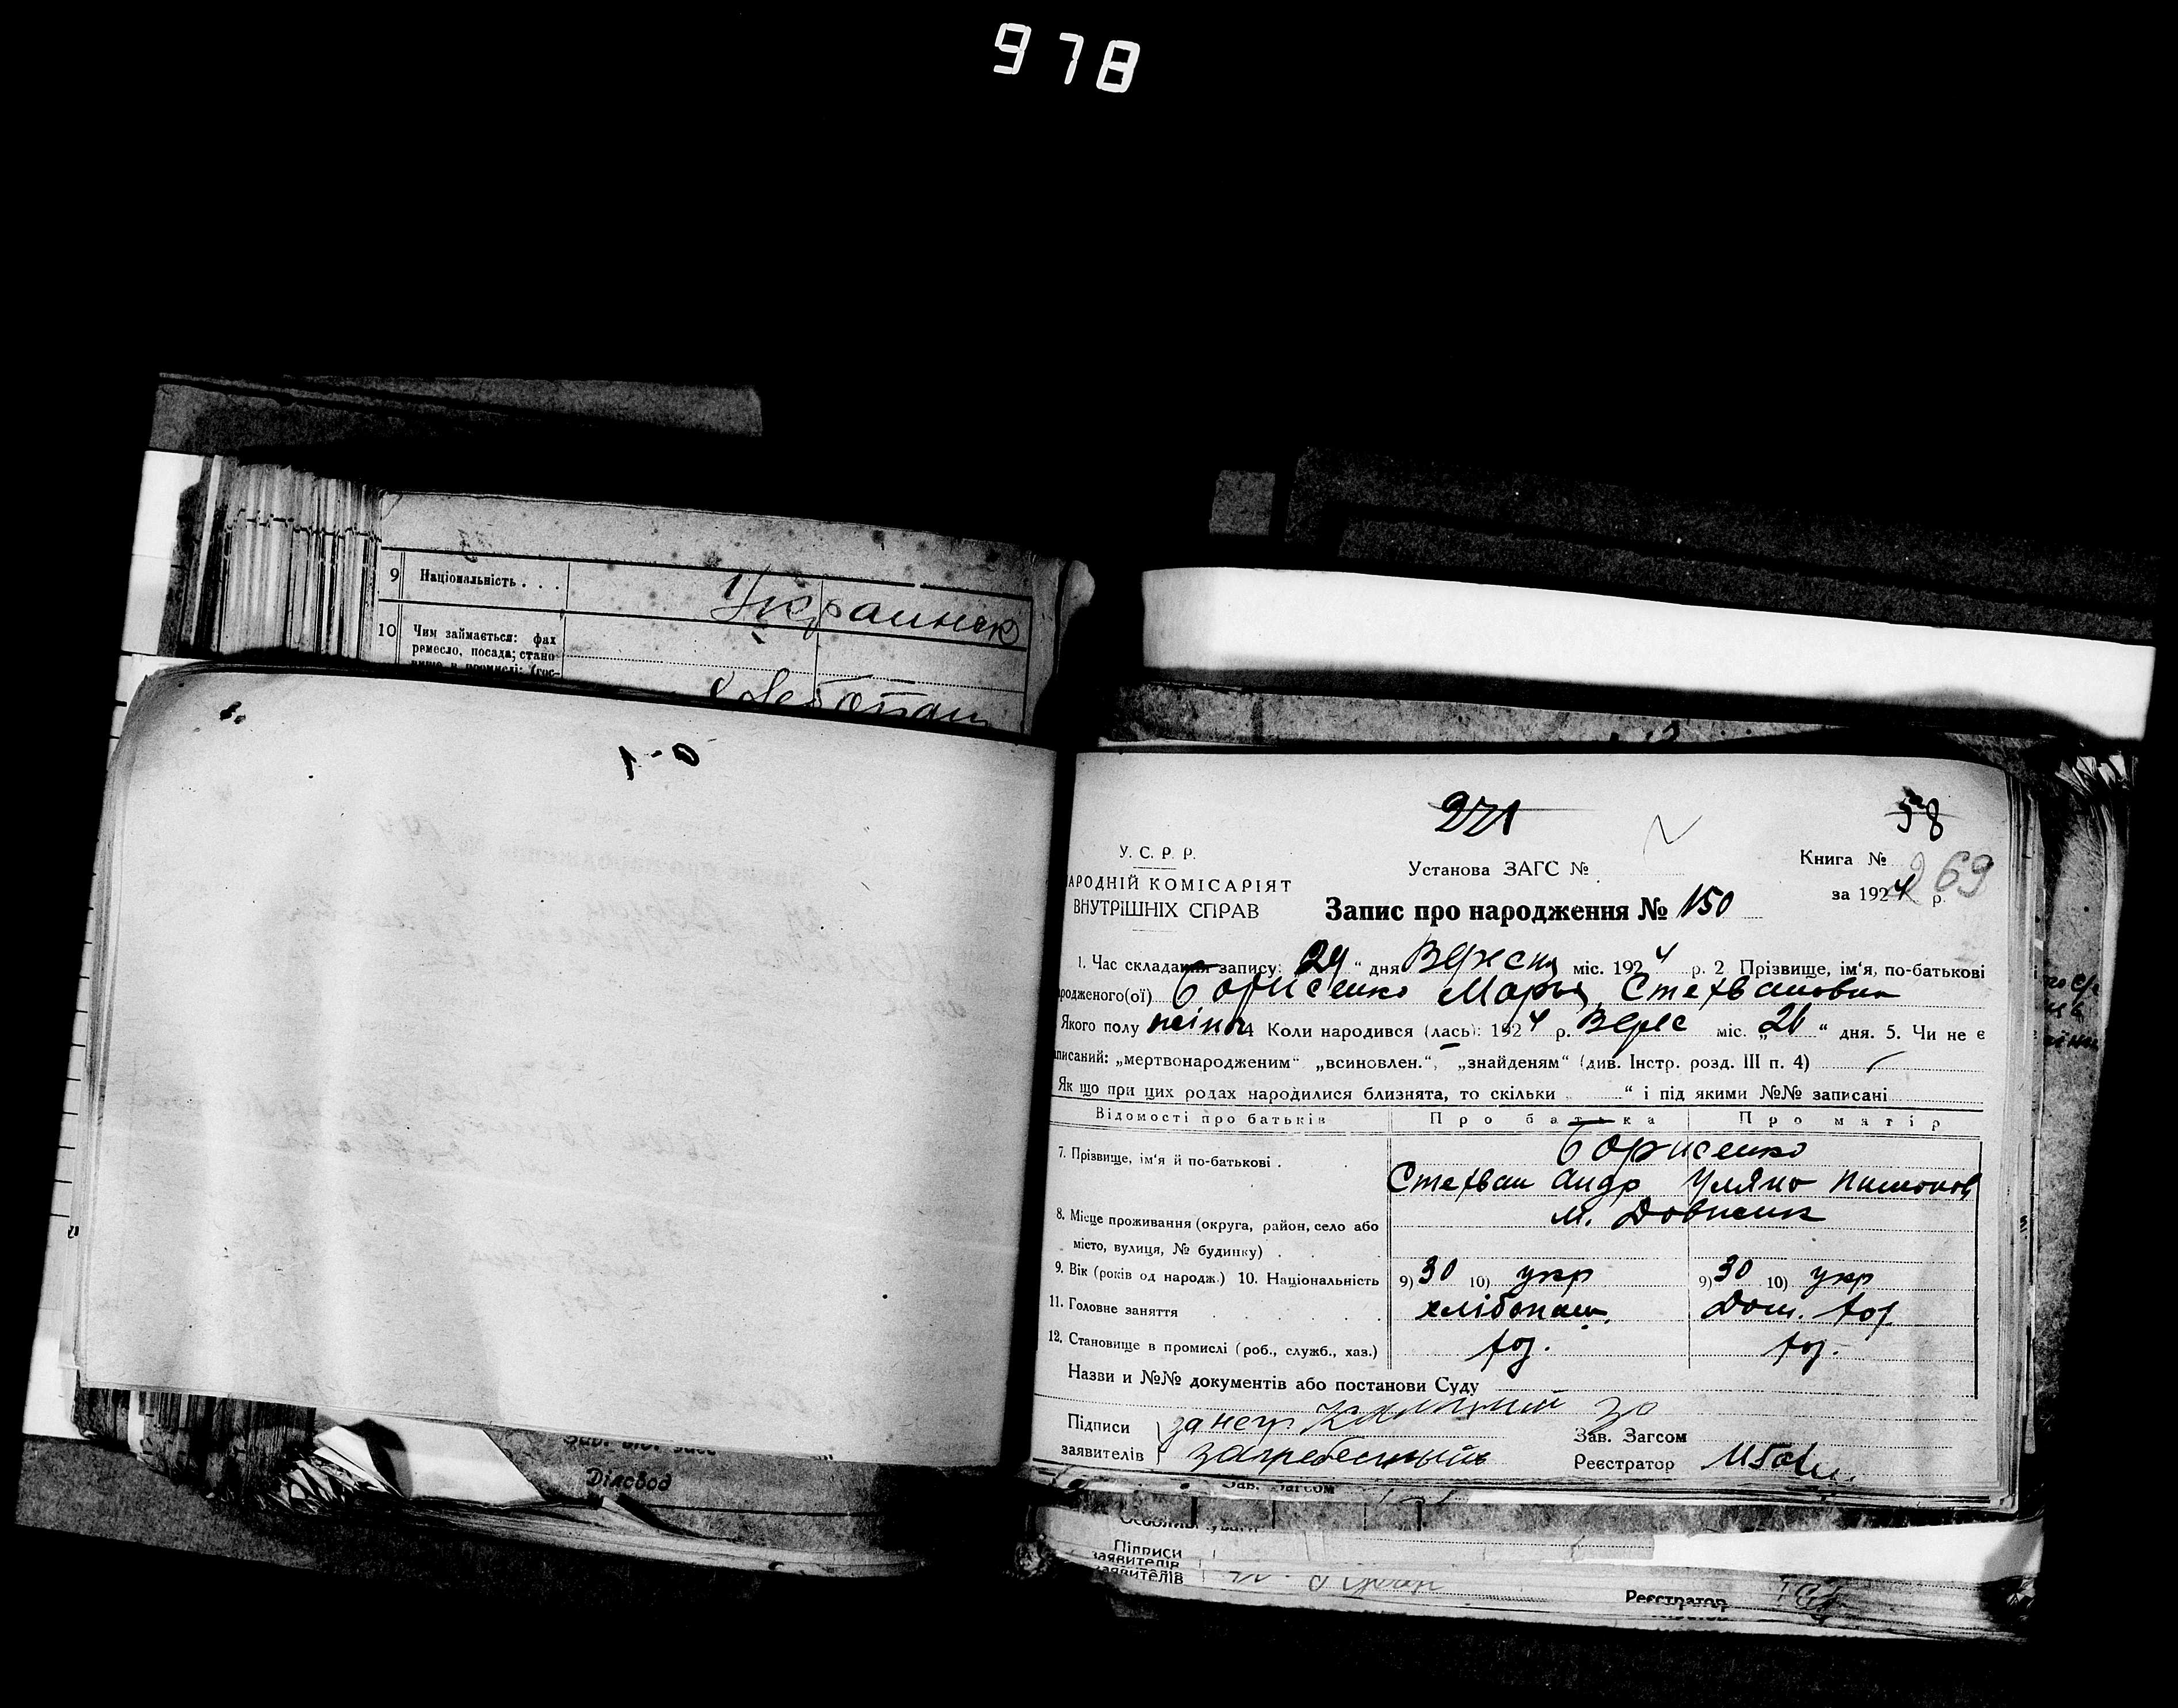 978
9 Національність . . .
Украинск
10 Чим займається: фах
ремесло, посада; стано-
1-0
Діловод
271
58
У. С. Р. Р.
Установа ЗАГС №
Книга №
269
АРОДНІЙ КОМІСАРІЯТ
за 1924 р.
ВНУТРІШНІХ СПРАВ
Запис про народження № 150
1. Час складання запису: „29“ дня Вересня міс. 1924 р. 2 Прізвище, ім'я, по-батькові
родженого(ої) Борисенко Марья Стефановна
Якого полу жіноч 4 Коли народився (лась): 1924 р. Верес міс. „26“ дня. 5. Чи не є
аписаний: „мертвонародженим“ „всиновлен.“, „знайденям“ (див. Інстр. розд. III п. 4)
Як що при цих родах народилися близнята, то скільки “ і під якими №№ записані
Відомості про батьків Про батька Про матір
7. Прізвище, ім'я й по-батькові . Борисенко
Стефан Андр Уляна
8. Місце проживання (округа, район, село або
м. Довжик
місто, вулиця, № будинку) .
9. Вік (років од народж.) 10. Національність 9) 30 10) укр 9) 30 10) укр
11. Головне заняття хлібопаш. Дом. хоз
12. Становище в промислі (роб., служб., хаз.) хоз. хоз.
Назви и №№ документів або постанови Суду
Підписи за негр
Зав. Загсом
заявителів
Реєстратор
Зав. Загсом
Підписи
заявителів
заявителів
Реєстратор